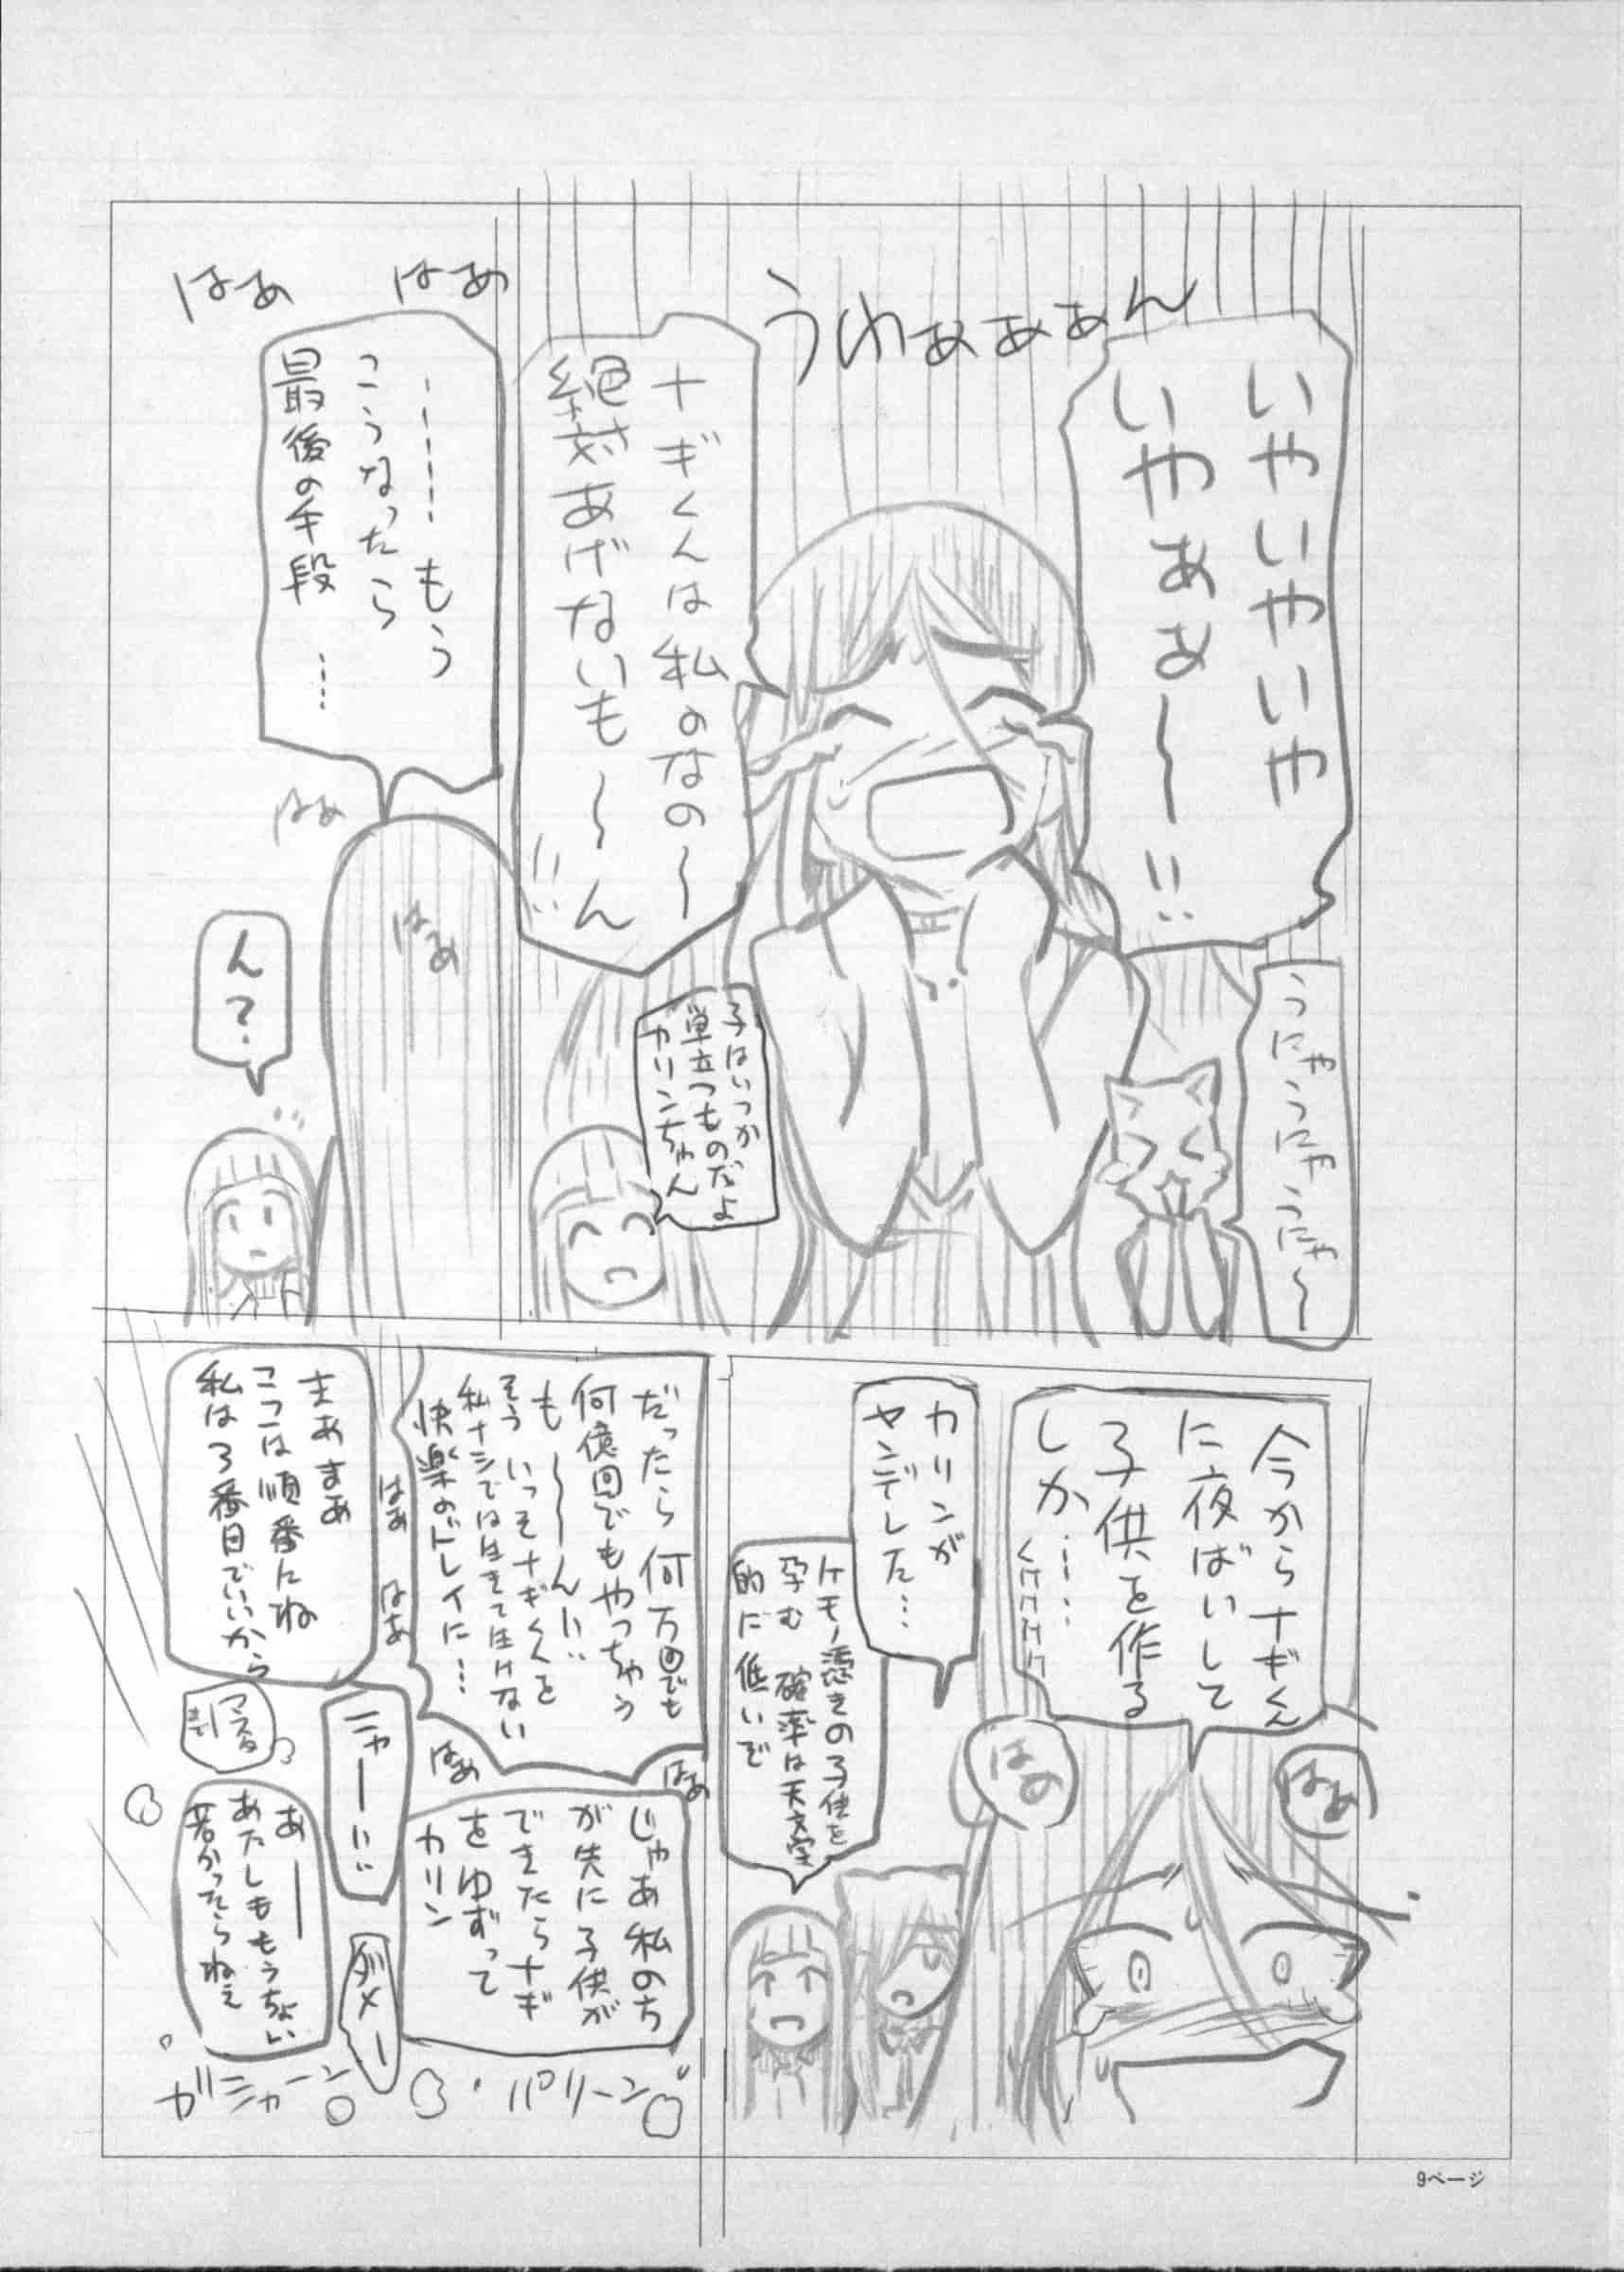 いやいやいや
いやぁぁ〜!!
うわぁぁぁぁん
うにゃうにゃうにゃ〜
ナギくんは私のなの〜
絶対あげないも〜ん
!!
子はいつか
巣立つものだよ
カリンちゃん
はぁ
はぁ
………もう
こうなったら
最後の手段……
はぁ
はぁ
ん?
今からナギくん
に夜ばいして
子供を作る
しか……
くけけけけ
カリンが
ヤンデレた…
ケモノ憑きの子供を
孕む確率は天文学
的に低いぞ
はぁ
はぁ
だったら何万回でも
何億回でもやっちゃう
も〜〜ん!!
そういっそナギくんを
私ナシでは生きて生けない
快楽のドレイに…
はぁ
はぁ
はぁ
はぁ
じゃあ私の方
が先に子供が
できたらナギ
をゆずって
カリン
まあまあ
ここは順番にね
私は3番目でいいから
ニャーー!!
ダメー
あーー
あたしももうちょい
若かったらねぇ
パリーン
ガシャーン
9ページ